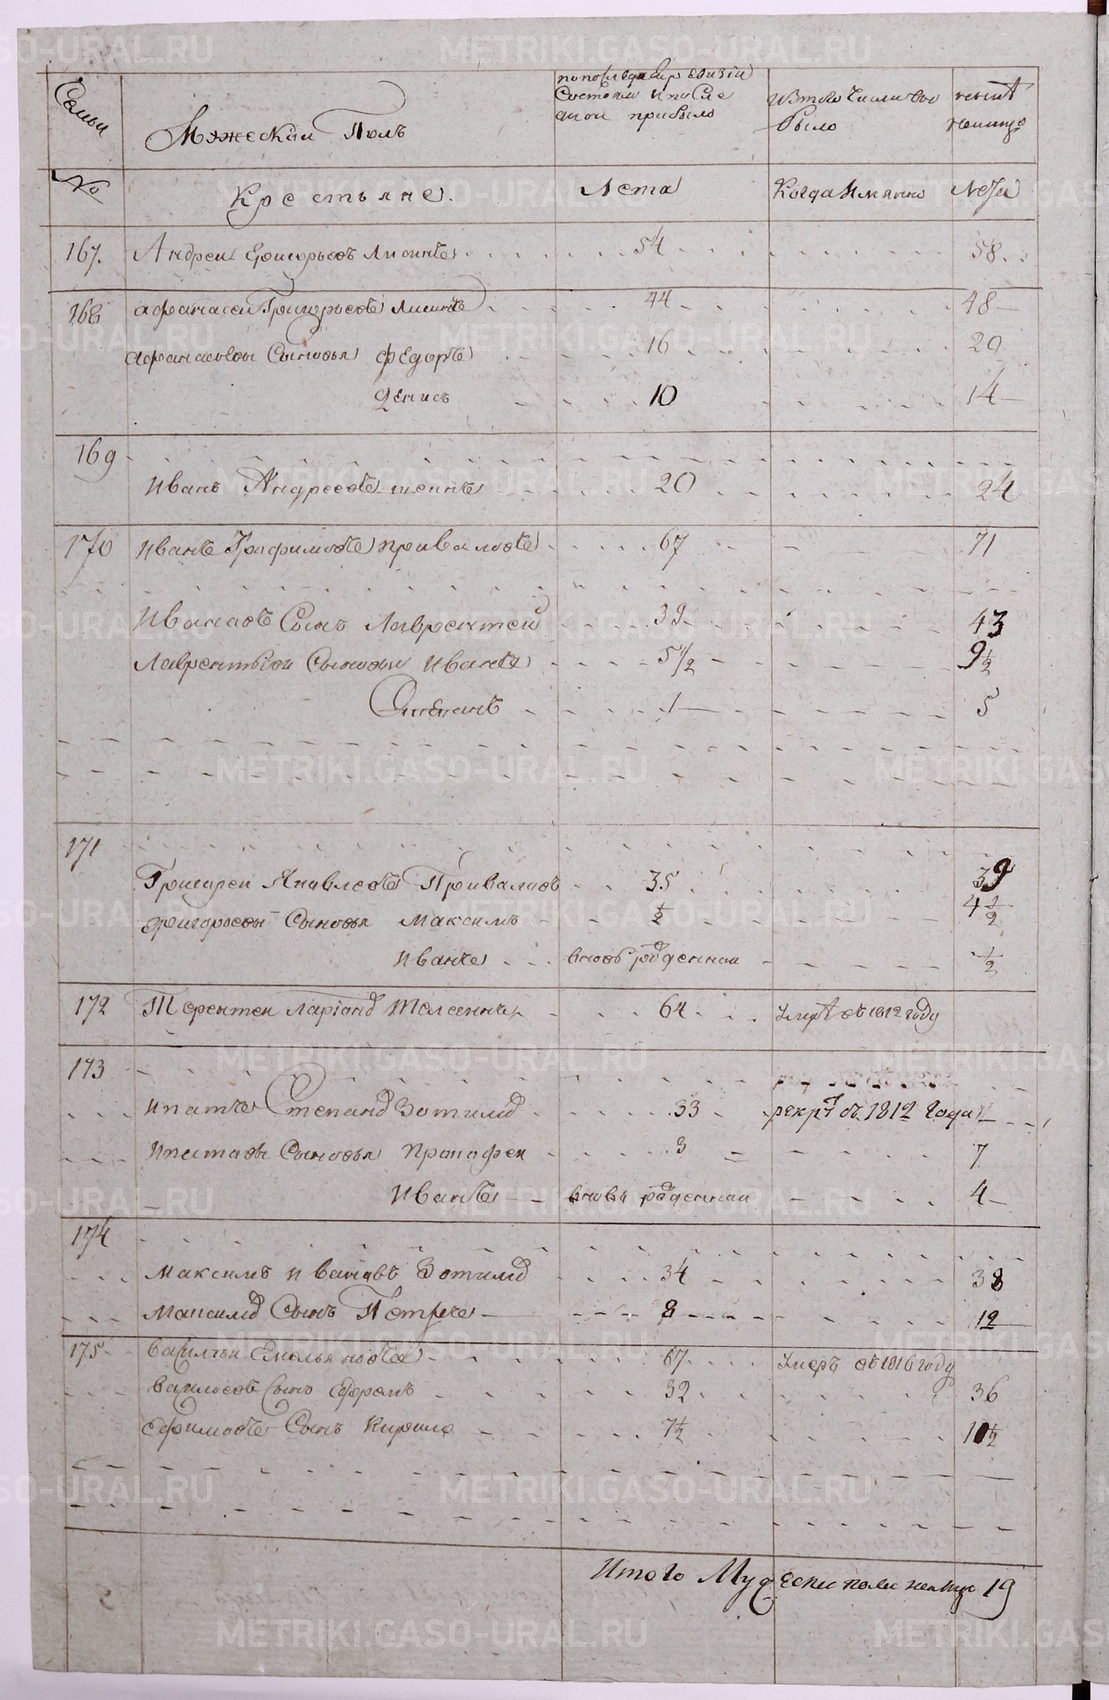 Семьи
Мужескаи Полъ
по последней ревизии
Состояло и после
оной прибыло
Изтого Числа вы
было
ныне
налицо
№
Крестьяне.
Лета
Когда Имянно
Лета
167. Андреи Григорьевъ 54 58
168 Афанасеи Григорьевъ 44 48
Афанасьевы Сыновья Федоръ 16 20
Денисъ 10 14
169
Иванъ Андреевъ 20 24
170 Иванъ Трафимовъ Приваловъ 67 71
Ивановъ Сынъ Лаврентеи 39 43
Лаврентьевы Сыновья Иванъ 5 1/2 9 1/2
Степанъ 1 5
171
Григореи Яковлевъ Приваловъ 35 39
Григорьевы Сыновья Максимъ 1/2 4 1/2
Иванъ вновь рожденнои 1/2
172 Терентеи Ларионовъ 64 Умре въ 1812 году
173
Ипатъ Степановъ Зотиковъ 33 рекр въ 1812 Года
Сыновья Прокофеи 3 7
Иванъ вновь рожденнои 4
174
Максимъ Ивановъ 34 38
Максимовъ Сынъ Петръ 8 12
175 Василеи Емельяновъ 67 Умеръ въ 1816 году
Васильевъ Сынъ Ефремъ 32 36
Ефимовъ Сынъ Кирило 7 1/2 10 1/2
Итого Мужеска пола налицо 19
METRIKI.GASO-URAL.RU